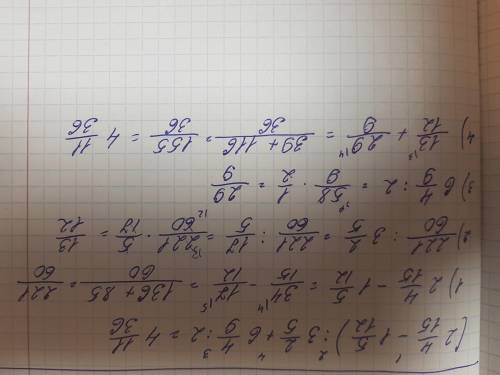 (2 4/15 - 1 5/12) : 3 2/5 + 6 4/9 : 2 = 4 11/36
1) 2 4/15 - 1 5/12 = 34/15 - 17/12 = 136 + 85/60 = 221/60
2) 221/60 : 3 2/5 = 221/60 : 17/5 = 221/60 · 5/17 = 13/12
3) 6 4/9 : 2 = 58/9 · 1/2 = 29/9
4) 13/12 + 29/9 = 39 + 116/36 = 155/36 = 4 11/36